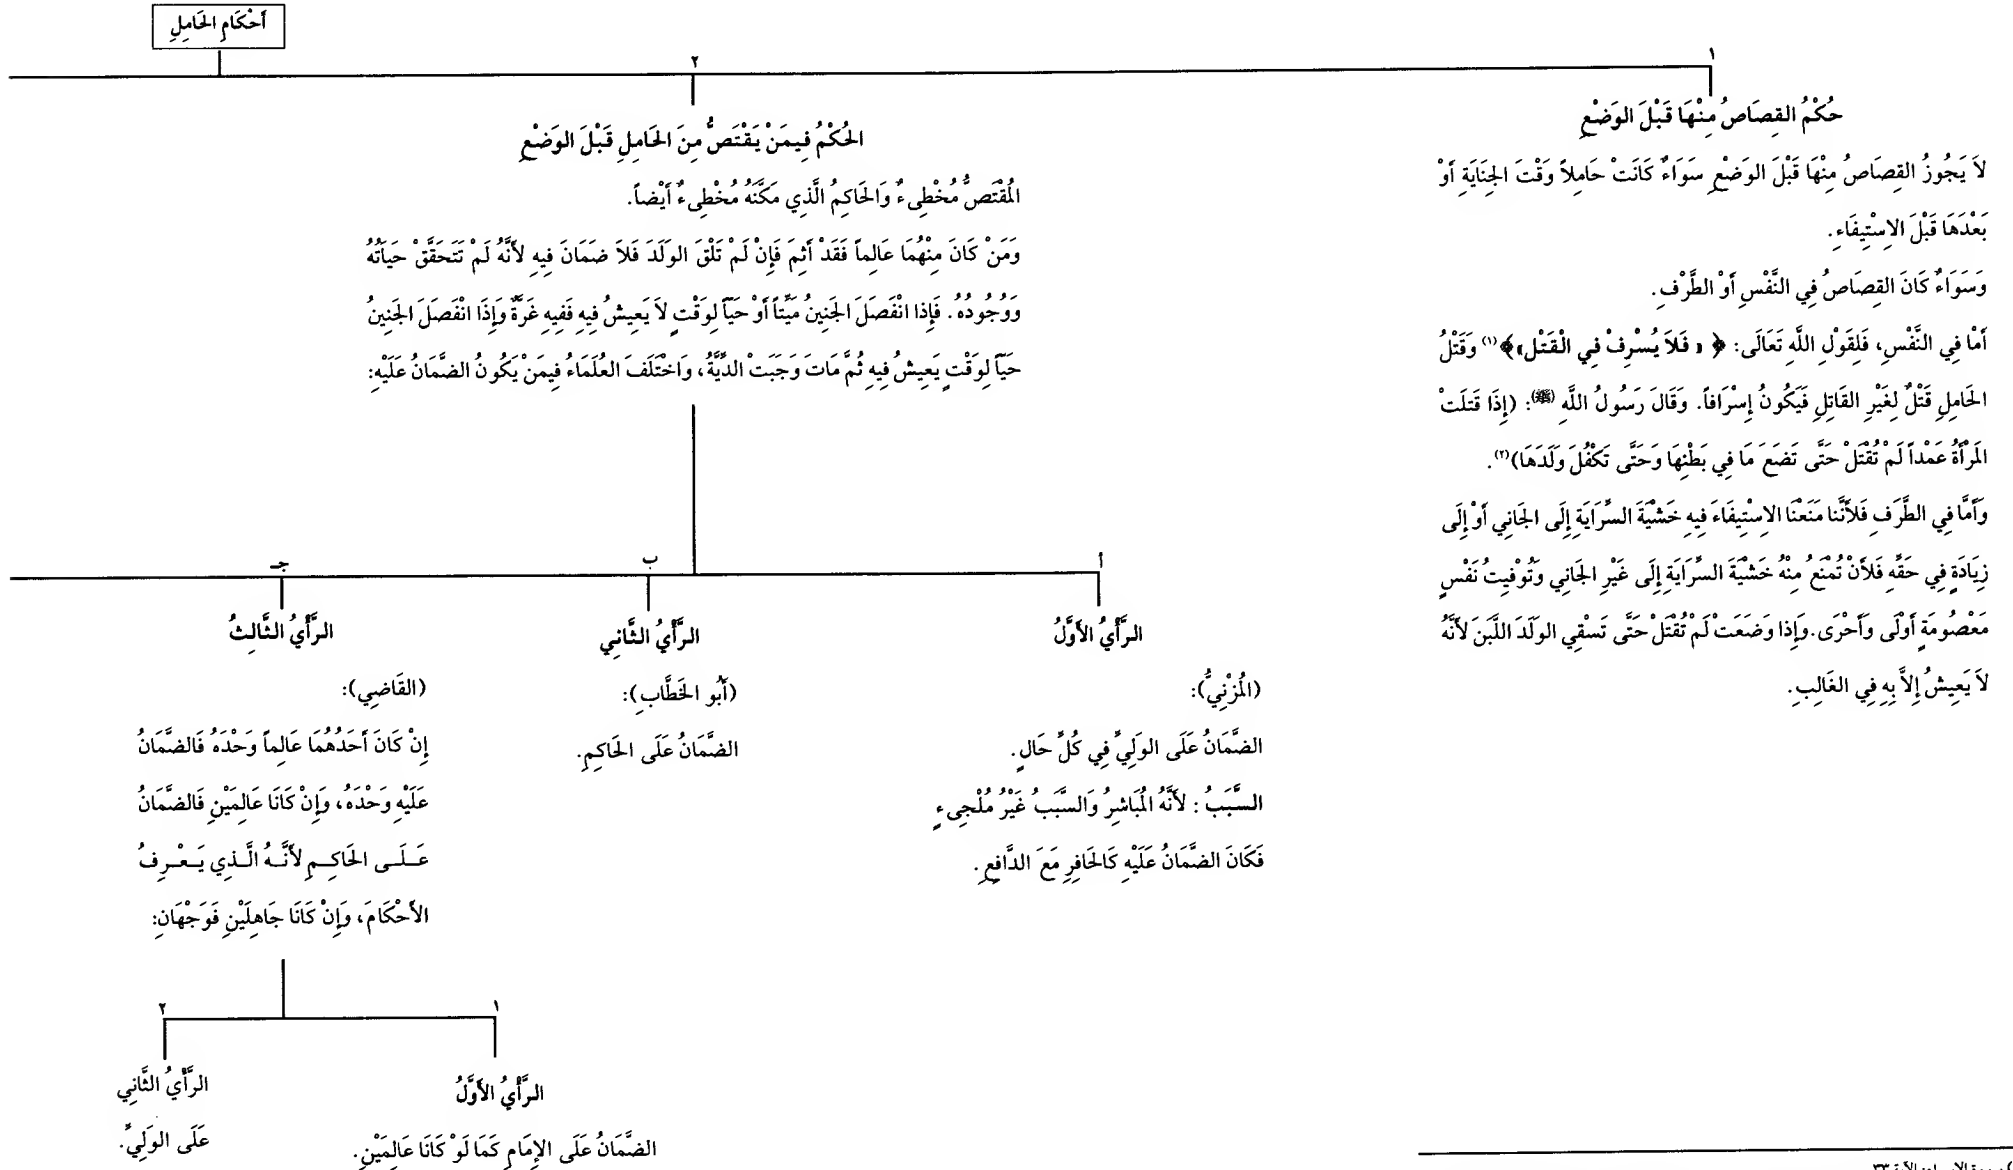 أَحْكَامِ الحَامِلِ
١
حُكْمُ القِصَاصُ مِنْهَا قَبْلَ الوَضْعِ
لاَ يَجُوزُ القِصَاصُ مِنْهَا قَبْلَ الوَضْعِ سَوَاءٌ كَانَتْ حَامِلاً وَقْتَ الجِنَايَةِ أَوْ
بَعْدَهَا قَبْلَ الاِسْتِيفَاءِ.
وَسَوَاءٌ كَانَ القِصَاصُ فِي النَّفْسِ أَوْ الطَّرْفِ.
أَمْا فِي النَّفْسِ، فَلِقَوْلِ اللَّهِ تَعَالَى: ﴿ فَلاَ يُسْرِفْ فِي الْقَتْلِ ﴾(١) وَقَتْلُ
الحَامِلِ قَتْلٌ لِغَيْرِ القَاتِلِ فَيَكُونُ إِسْرَافاً. وَقَالَ رَسُولُ اللَّهِ (ﷺ): (إِذَا قَتَلَتْ
المَرْأَةُ عَمْداً لَمْ تُقْتَلْ حَتَّى تَضَعَ مَا فِي بَطْنِهَا وَحَتَّى تَكْفُلَ وَلَدَهَا)(٢).
وَأَمَّا فِي الطَّرَفِ فَلأَنَّنا مَنَعْنَا الاِسْتِيفَاءَ فِيهِ خَشْيَةَ السِّرَايَةِ إِلَى الجَانِي أَوْ إِلَى
زِيَادَةٍ فِي حَقِّهِ فَلأَنْ تُمْنَعُ مِنْهُ خَشْيَةَ السِّرَايَةِ إِلَى غَيْرِ الجَانِي وَتُوْفِيتُ نَفْسٍ
مَعْصُومَةٍ أَوْلَى وَأَحْرَى. وَإِذا وَضَعَتْ لَمْ تُقْتَلْ حَتَّى تَسْقِي الوَلَدَ اللَّبَنَ لأَنَّهُ
لاَ يَعِيشُ إِلاَّ بِهِ فِي الغَالِبِ.
٢
الحُكْمُ فِيمَنْ يَقْتَصُّ مِنَ الحَامِلِ قَبْلَ الوَضْعِ
المُقْتَصُّ مُخْطِىءٌ وَالحَاكِمُ الَّذِي مَكَّنَهُ مُخْطِىءٌ أَيْضاً.
وَمَنْ كَانَ مِنْهُمَا عَالِماً فَقَدْ أَثِمَ فَإِنْ لَمْ تَلْقَ الوَلَدَ فَلاَ ضَمَانَ فِيهِ لأَنَّهُ لَمْ تَتَحَقَّقْ حَيَاتُهُ
وَوُجُودُهُ. فَإِذا انْفَصَلَ الجَنِينُ مَيِّتاً أَوْ حَيّاً لِوَقْتٍ لاَ يَعِيشُ فِيهِ فَفِيهِ غَرَّةٌ وَإِذَا انْفَصَلَ الجَنِينُ
حَيّاً لِوَقْتٍ يَعِيشُ فِيهِ ثُمَّ مَاتَ وَجَبَتْ الدِّيَّةُ، وَاخْتَلَفَ العُلَمَاءُ فِيمَنْ يَكُونُ الضَّمَانُ عَلَيْهِ:
أ
الرَّأْيُ الأَوَّلُ
(المُزْنِيُّ):
الضَّمَانُ عَلَى الوَلِيِّ فِي كُلِّ حَالٍ.
السَّبَبُ: لأَنَّهُ المُبَاشِرُ وَالسَّبَبُ غَيْرُ مُلْجِىءٍ
فَكَانَ الضَّمَانُ عَلَيْهِ كَالحَافِرِ مَعَ الدَّافِعِ.
ب
الرَّأْيُ الثَّانِي
(أَبُو الخَطَّابِ):
الضَّمَانُ عَلَى الحَاكِمِ.
جـ
الرَّأْيُ الثَّالِثُ
(القَاضِي):
إِنْ كَانَ أَحَدُهُمَا عَالِماً وَحْدَهُ فَالضَّمَانُ
عَلَيْهِ وَحْدَهُ، وَإِنْ كَانَا عَالِمَيْنِ فَالضَّمَانُ
عَلَى الحَاكِمِ لأَنَّهُ الَّذِي يَعْرِفُ
الأَحْكَامَ، وَإِنْ كَانَا جَاهِلَيْنِ فَوَجْهَانِ:
١
الرَّأْيُ الأَوَّلُ
الضَّمَانُ عَلَى الإِمَامِ كَمَا لَوْ كَانَا عَالِمَيْنِ.
٢
الرَّأْيُ الثَّانِي
عَلَى الوَلِيِّ.